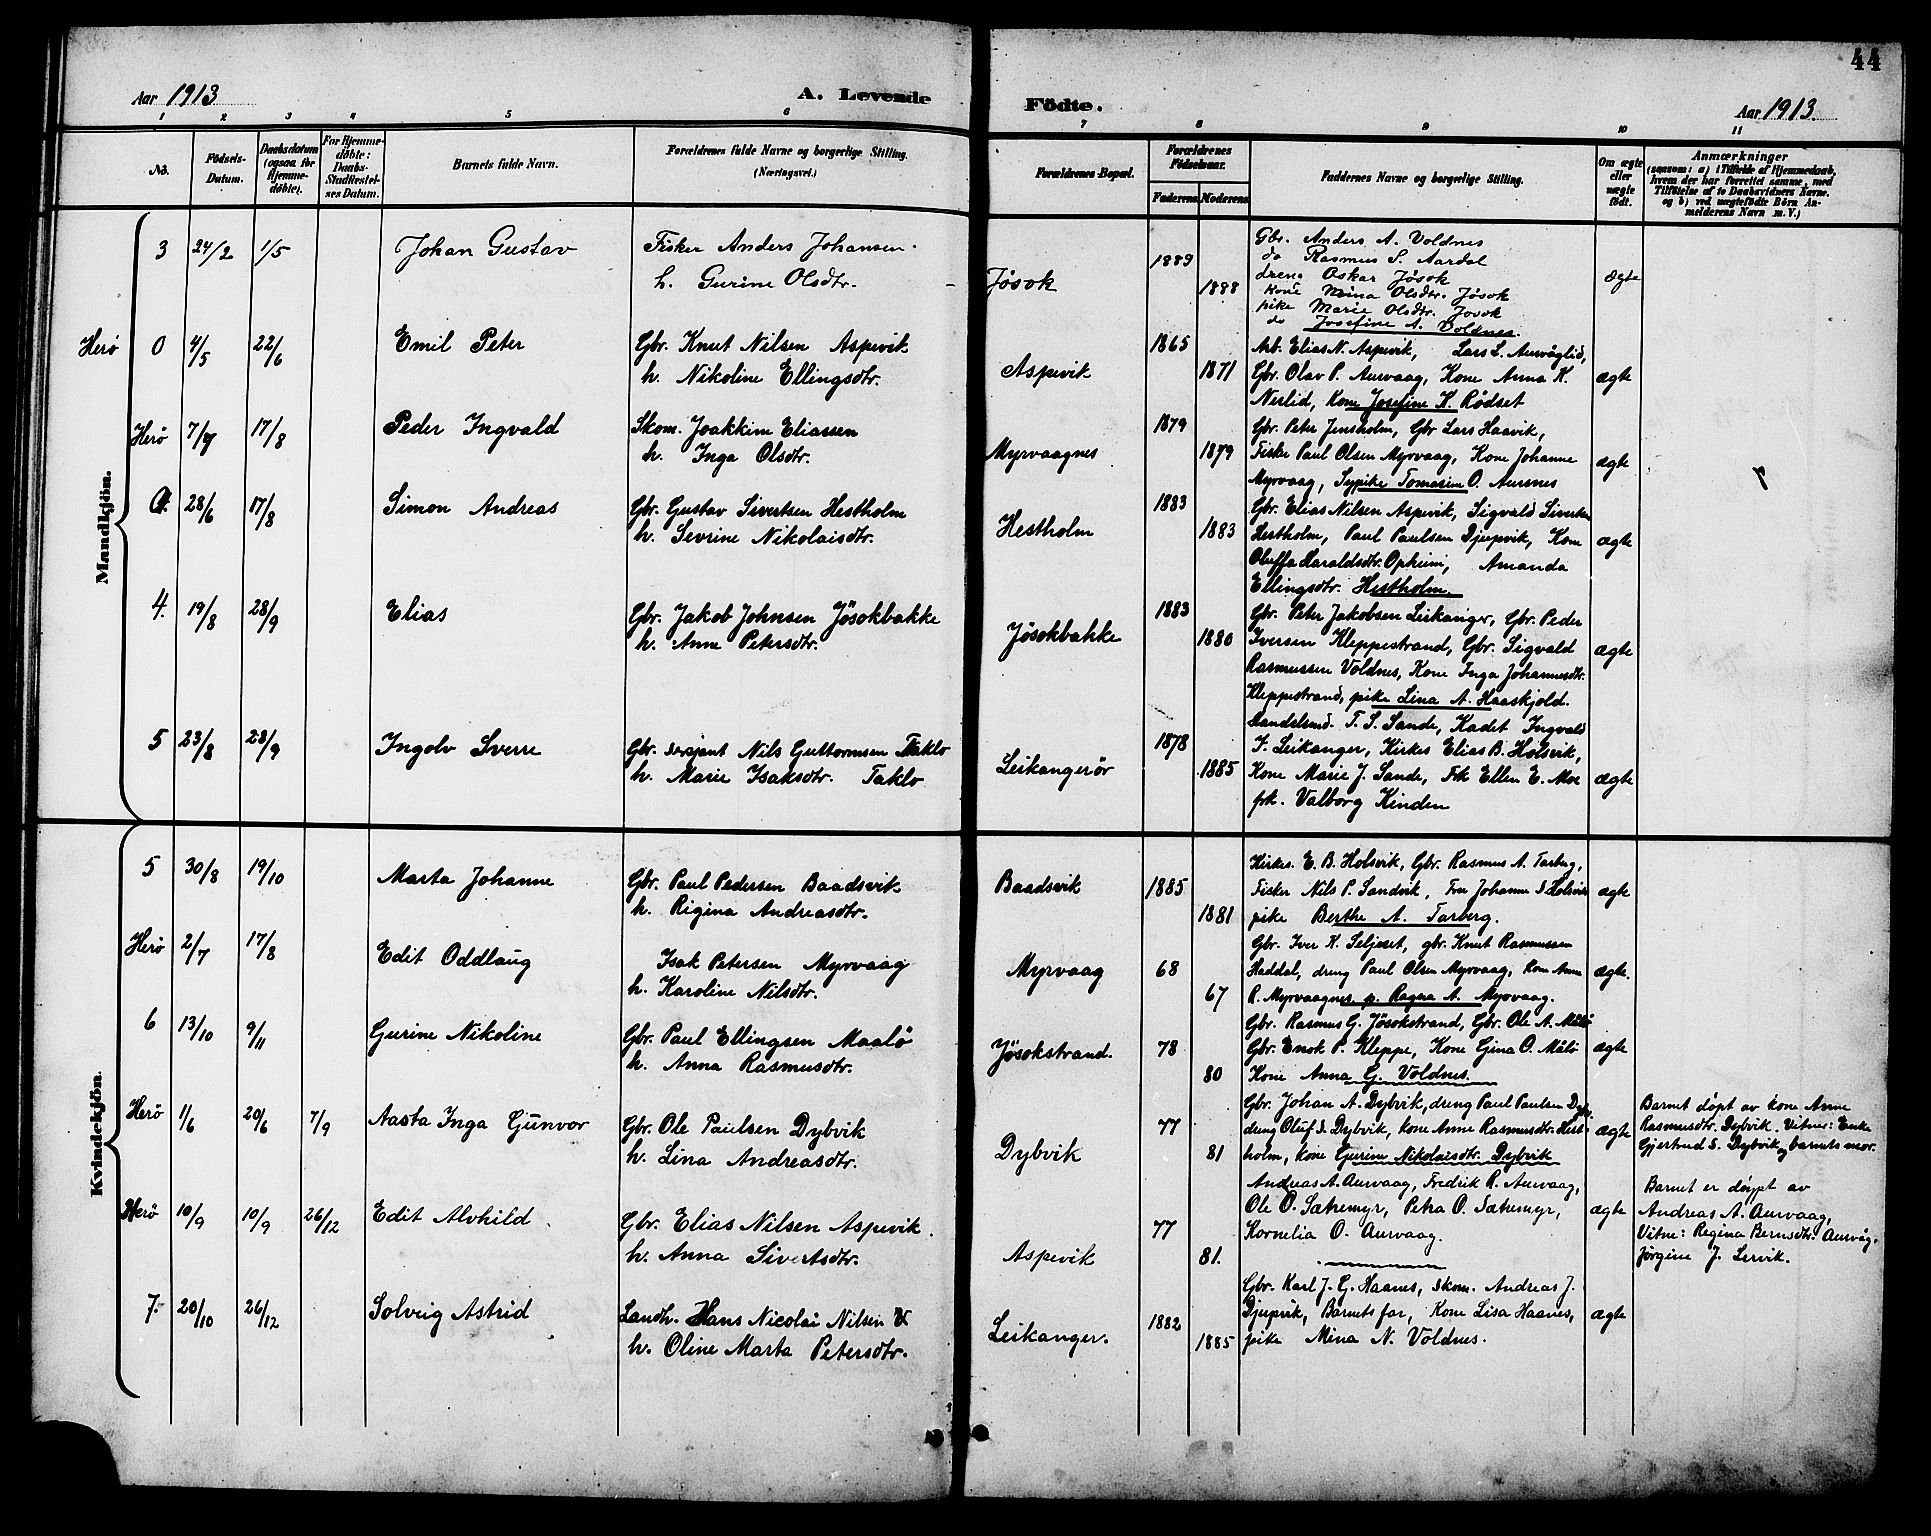 44
Aar 1913
A. Levende
Födte.
Aar 1913
1 2 3 4 5 6 7 8 9 10 11
No.
Födsels-Datum.
Daabsdatum (ogsaa for Hjemmedöbte).
For Hjemmedöbte: Daabs-Stadfæstelses Datum.
Barnets fulde Navn.
Forældrenes fulde Navne og borgerlige Stilling.
(Næringsvei.)
Forældrenes Bopæl.
Forældrenes Födselsaar.
Faderens Moderens
Faddernes Navne og borgerlige Stilling.
Om ægte eller uægte födt.
Anmærkninger
(saasom: a) i Tilfælde af Hjemmedaab,
hvem der har forrettet samme, med
Tilföielse af to Daabsvidners Navne.
og b) ved uægtefödte Börn An-
melderens Navn m. V.)
Mandkjön.
3 24/2 1/5 Johan Gustav
Fisker Anders Johansen
h. Gurine Olsdtr.
Jøsok 1889 1888
Gbr. Anders A. Voldnes
do Rasmus S. Aardal
dreng Oskar Jøsok
Kone Mina Olsdtr. Jøsok
pike Marie Olsdtr. Jøsok
do Josefine A. Voldnes.
ægte
Herö 0 4/5 22/6 Emil Peter
Gbr. Knut Nilsen Aspevik
h. Nikoline Ellingsdtr.
Aspevik 1865 1871
Arb. Elias N. Aspevik, Lars L. Aurvåglid,
Gbr. Olav P. Aurvaag, Kone Anna K.
Nerlid, Kone Josefine K. Rødset
ægte
Herö 7/7 17/8 Peder Ingvald
Skom. Joakkim Eliassen
h. Inga Olsdtr.
Myrvaagnes 1879 1879
Gbr. Peter Jensholm, Gbr Lars Haavik,
Fiske Paul Olsen Myrvaag, Kone Johanne
Myrvaag, Sypike Tomarine O. Aursnes
ægte
28/6 17/8 Simon Andreas
Gbr. Gustav Sivertsen Hestholm
h. Sevrine Nikolaisdtr.
Hestholm 1883 1883
Gbr. Elias Nilsen Aspevik, Sigvald Sivertsen
Hestholm, Paul Paulsen Djupvik, Kone
Oluffa Haraldsdtr. Opheim, Amanda
Ellingsdtr. Hestholm.
ægte
4. 19/8 28/9 Elias
Gbr. Jakob Johnsen Jösokbakke
h. Anne Petersdtr.
Jøsokbakke 1883 1880
Gbr. Peter Jakobsen Leikanger, Gbr. Peder
Iversen Kleppestrand, Gbr. Sigvald
Rasmussen Voldnes, Kone Inga Johannesdtr.
Kleppestrand, pike Lina A. Haaskjold.
ægte
5 23/8 28/9 Ingolv Sverre
Gbr. sersjant Nils Guttormsen Taklo
h. Marie Isaksdtr. Taklo
Leikangerör 1878 1885
Handelsmd. T. S. Sande, Kadet Ingvald
J. Leikanger, Kirkes Elias B. Holsvik,
Kone Marie J. Sande, Frk Ellen E. Moe
frk. Valborg Kinden
ægte
Kvindekjön.
5 30/8 19/10 Marta Johanne
Gbr. Paul Pedersen Baadsvik
h. Rigina Andreasdtr.
Baadsvik 1885 1881
Kirkes. E. B. Holsvik, Gbr. Rasmus A. Tarberg,
Fisker Nils P. Sandvik, Fru Johanne S Holsvik
pike Berthe A. Tarberg.
ægte
Herö 2/7 17/8 Edit Oddlaug
Isak Petersen Myrvaag
h. Karoline Nilsdtr.
Myrvaag 68 67
Gbr. Iver K. Seljeset, gbr. Knut Rasmussen
Haddal, dreng Paul Olsen Myrvaag, Kone Anne
R. Myrvaagnes, p. Ragna A. Myrvaag.
ægte.
6 13/10 9/11 Gurine Nikoline
Gbr. Paul Ellingsen Maalö
h. Anna Rasmusdtr.
Jøsokstrand. 78 80
Gbr. Rasmus G. Jøsokstrand, Gbr. Ole A. Målö
Gbr. Enok P. Kleppe, Kone Gina O. Målö
Kone Anna G. Voldnes.
ægte
Herö 1/6 20/6 7/9 Aasta Inga Gunvor
Gbr. Ole Paulsen Dybvik
h. Lina Andreasdtr.
Dybvik 77 81
Gbr. Johan A. Dybvik, dreng Paul Paulsen Dybv.
dreng Oluf S. Dybvik, kone Anne Rasmusdtr. Hest-
holm, kone Gurine Nikolaisdtr. Dybvik
ægte
Barnet døpt av kone Anne
Rasmusdtr. Dybvik. Vitner: Enke
Gjertrud S. Dybvik og barnets mor.
Herö 10/9 10/9 26/12 Edit Alvhild
Gbr. Elias Nilsen Aspevik.
h. Anna Sivertsdtr.
Aspevik 77 81.
Andreas A. Aurvaag, Fredrik R. Aurvaag,
Ole O. Sætremyr, Petra O. Sætremyr,
Kornelia O. Aurvaag.
ægte
Barnet er døypt av
Andreas A. Aurvaag,
Vitne: Regina Berntsdtr. Aurvåg.
Jørgine J. Lervik.
7. 20/10 26/12 Solveig Astrid
Landh. Hans Nicolai Nilsen
h. Oline Marta Petersdtr.
Leikanger. 1882 1885
Gbr. Karl J. G. Haanes, Skom. Andreas J.
Djupvik, Barnets far, Kone Lisa Haanes,
pike Mina N. Voldnes.
ægte